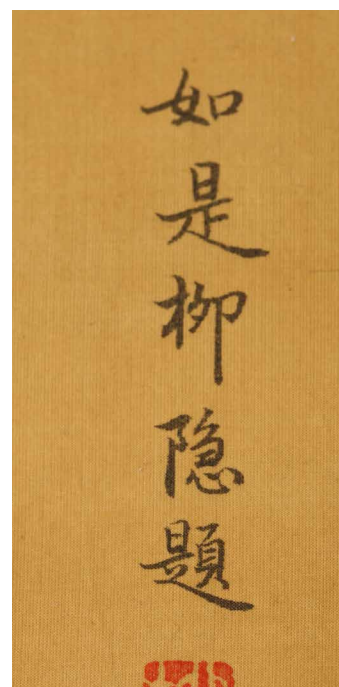 如是柳隐題